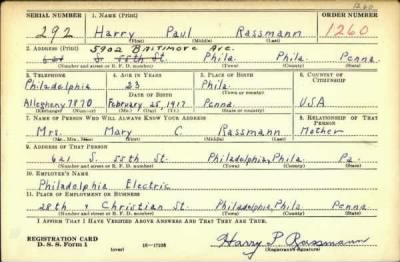 1260
SERIAL NUMBER 1. NAME (Print) ORDER NUMBER
292 Harry Paul Rassmann 1260
(First) (Middle) (Last)
5902 Baltimore Ave.
2. ADDRESS (Print)
621 S. 55th St. Phila. Phila. Penna.
(Number and street or R. F. D. number) (Town) (County) (State)
3. TELEPHONE 4. AGE IN YEARS 5. PLACE OF BIRTH 6. COUNTRY OF CITIZENSHIP
Philadelphia 23 Phila.
DATE OF BIRTH (Town or county)
Allegheny 7870 February 25, 1917 Penna. USA
(Exchange) (Number) (Mo.) (Day) (Yr.) (State or country)
7. NAME OF PERSON WHO WILL ALWAYS KNOW YOUR ADDRESS 8. RELATIONSHIP OF THAT PERSON
Mrs. Mary C. Rassmann Mother
(Mr., Mrs., Miss) (First) (Middle) (Last)
9. ADDRESS OF THAT PERSON
621 S. 55th St. Philadelphia, Phila. Pa.
(Number and street or R. F. D. number) (Town) (County) (State)
10. EMPLOYER'S NAME
Philadelphia Electric
11. PLACE OF EMPLOYMENT OR BUSINESS
28th & Christian St. Philadelphia, Phila Penna
(Number and street or R. F. D. number) (Town) (County) (State)
I AFFIRM THAT I HAVE VERIFIED ABOVE ANSWERS AND THAT THEY ARE TRUE.
REGISTRATION CARD
D. S. S. Form 1 (over) 16—17105 Harry P. Rassmann
(Registrant's signature)